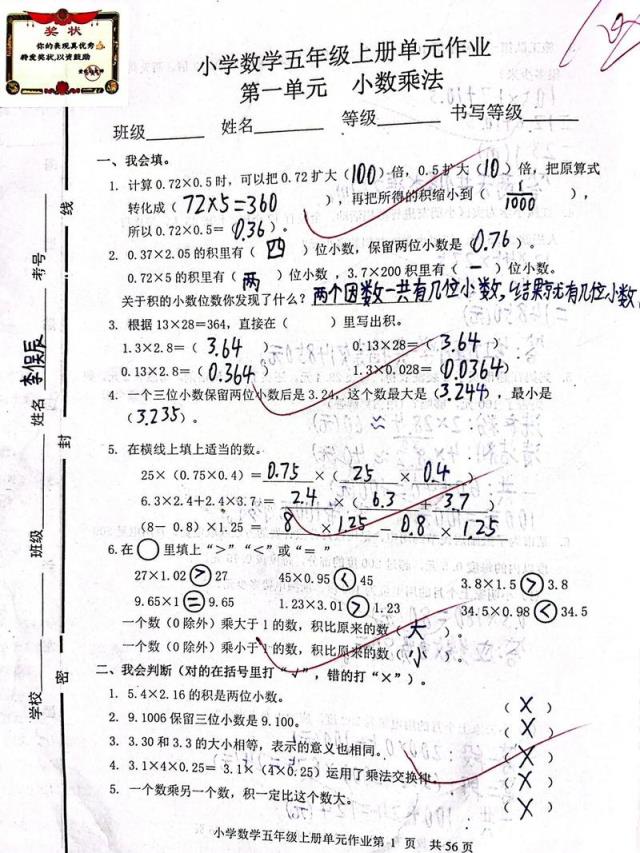 奖状
你的表现真优秀
特发奖状,以资鼓励
小学数学五年级上册单元作业
第一单元 小数乘法
班级 姓名 等级 书写等级
一、我会填。
1. 计算 0.72×0.5 时,可以把 0.72 扩大(100)倍,0.5 扩大(10)倍,把原算式
转化成(72×5=360),再把所得的积缩小到(1/1000),
所以 0.72×0.5=(0.36)。
2. 0.37×2.05 的积里有(四)位小数,保留两位小数是(0.76)。
0.72×5 的积里有(两)位小数,3.7×200 积里有(一)位小数。
关于积的小数位数你发现了什么?两个因数一共有几位小数,结果就有几位小数
3. 根据 13×28=364,直接在( )里写出积。
1.3×2.8=(3.64) 0.13×28=(3.64)
0.13×2.8=(0.364) 1.3×0.028=(0.0364)
4. 一个三位小数保留两位小数后是 3.24,这个数最大是(3.244),最小是
(3.235)。
5. 在横线上填上适当的数。
25×(0.75×0.4)=0.75×(25×0.4)
6.3×2.4+2.4×3.7=2.4×(6.3+3.7)
(8-0.8)×1.25=8×1.25-0.8×1.25
6. 在○里填上“>”“<”或“=”
27×1.02>27 45×0.95<45 3.8×1.5>3.8
9.65×1=9.65 1.23×3.01>1.23 34.5×0.98<34.5
一个数(0 除外)乘大于 1 的数,积比原来的数(大)。
一个数(0 除外)乘小于 1 的数,积比原来的数(小)。
二、我会判断(对的在括号里打“√”,错的打“×”)。
1. 5.4×2.16 的积是两位小数。 (X)
2. 9.1006 保留三位小数是 9.100。 (X)
3. 3.30 和 3.3 的大小相等,表示的意义也相同。 (X)
4. 3.1×4×0.25= 3.1×(4×0.25)运用了乘法交换律。 (X)
5. 一个数乘另一个数,积一定比这个数大。 (X)
小学数学五年级上册单元作业第 1 页 共 56 页
学校 班级 姓名 考号
密 封 线